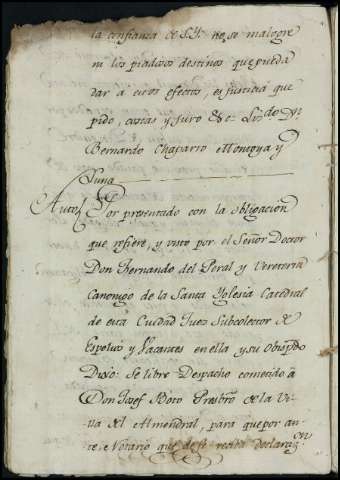 la confianza de S.M. ne, se malogre
ni los piadosos destinos que pueda
dar a estos efectos, es justicia que
pido, costas y juro &c. Liz.do Dn
Bernardo Chaparro Monrroya y
Luna
Auto Por presentado con la obligacion
que refiere, y visto por el Señor Doctor
Don Hernando del Peral y Vereterra
Canonigo de la Santa Yglesia Catedral
de esta Ciudad Juez Subcolector de
Espolios y Vacantes en ella y su Obispado
Dixo: Se libre Despacho cometido à
Don Josef Boto Presbro de la Vi
lla del Almendral, para que por an
te Notario que de fe reciba declaraz.on